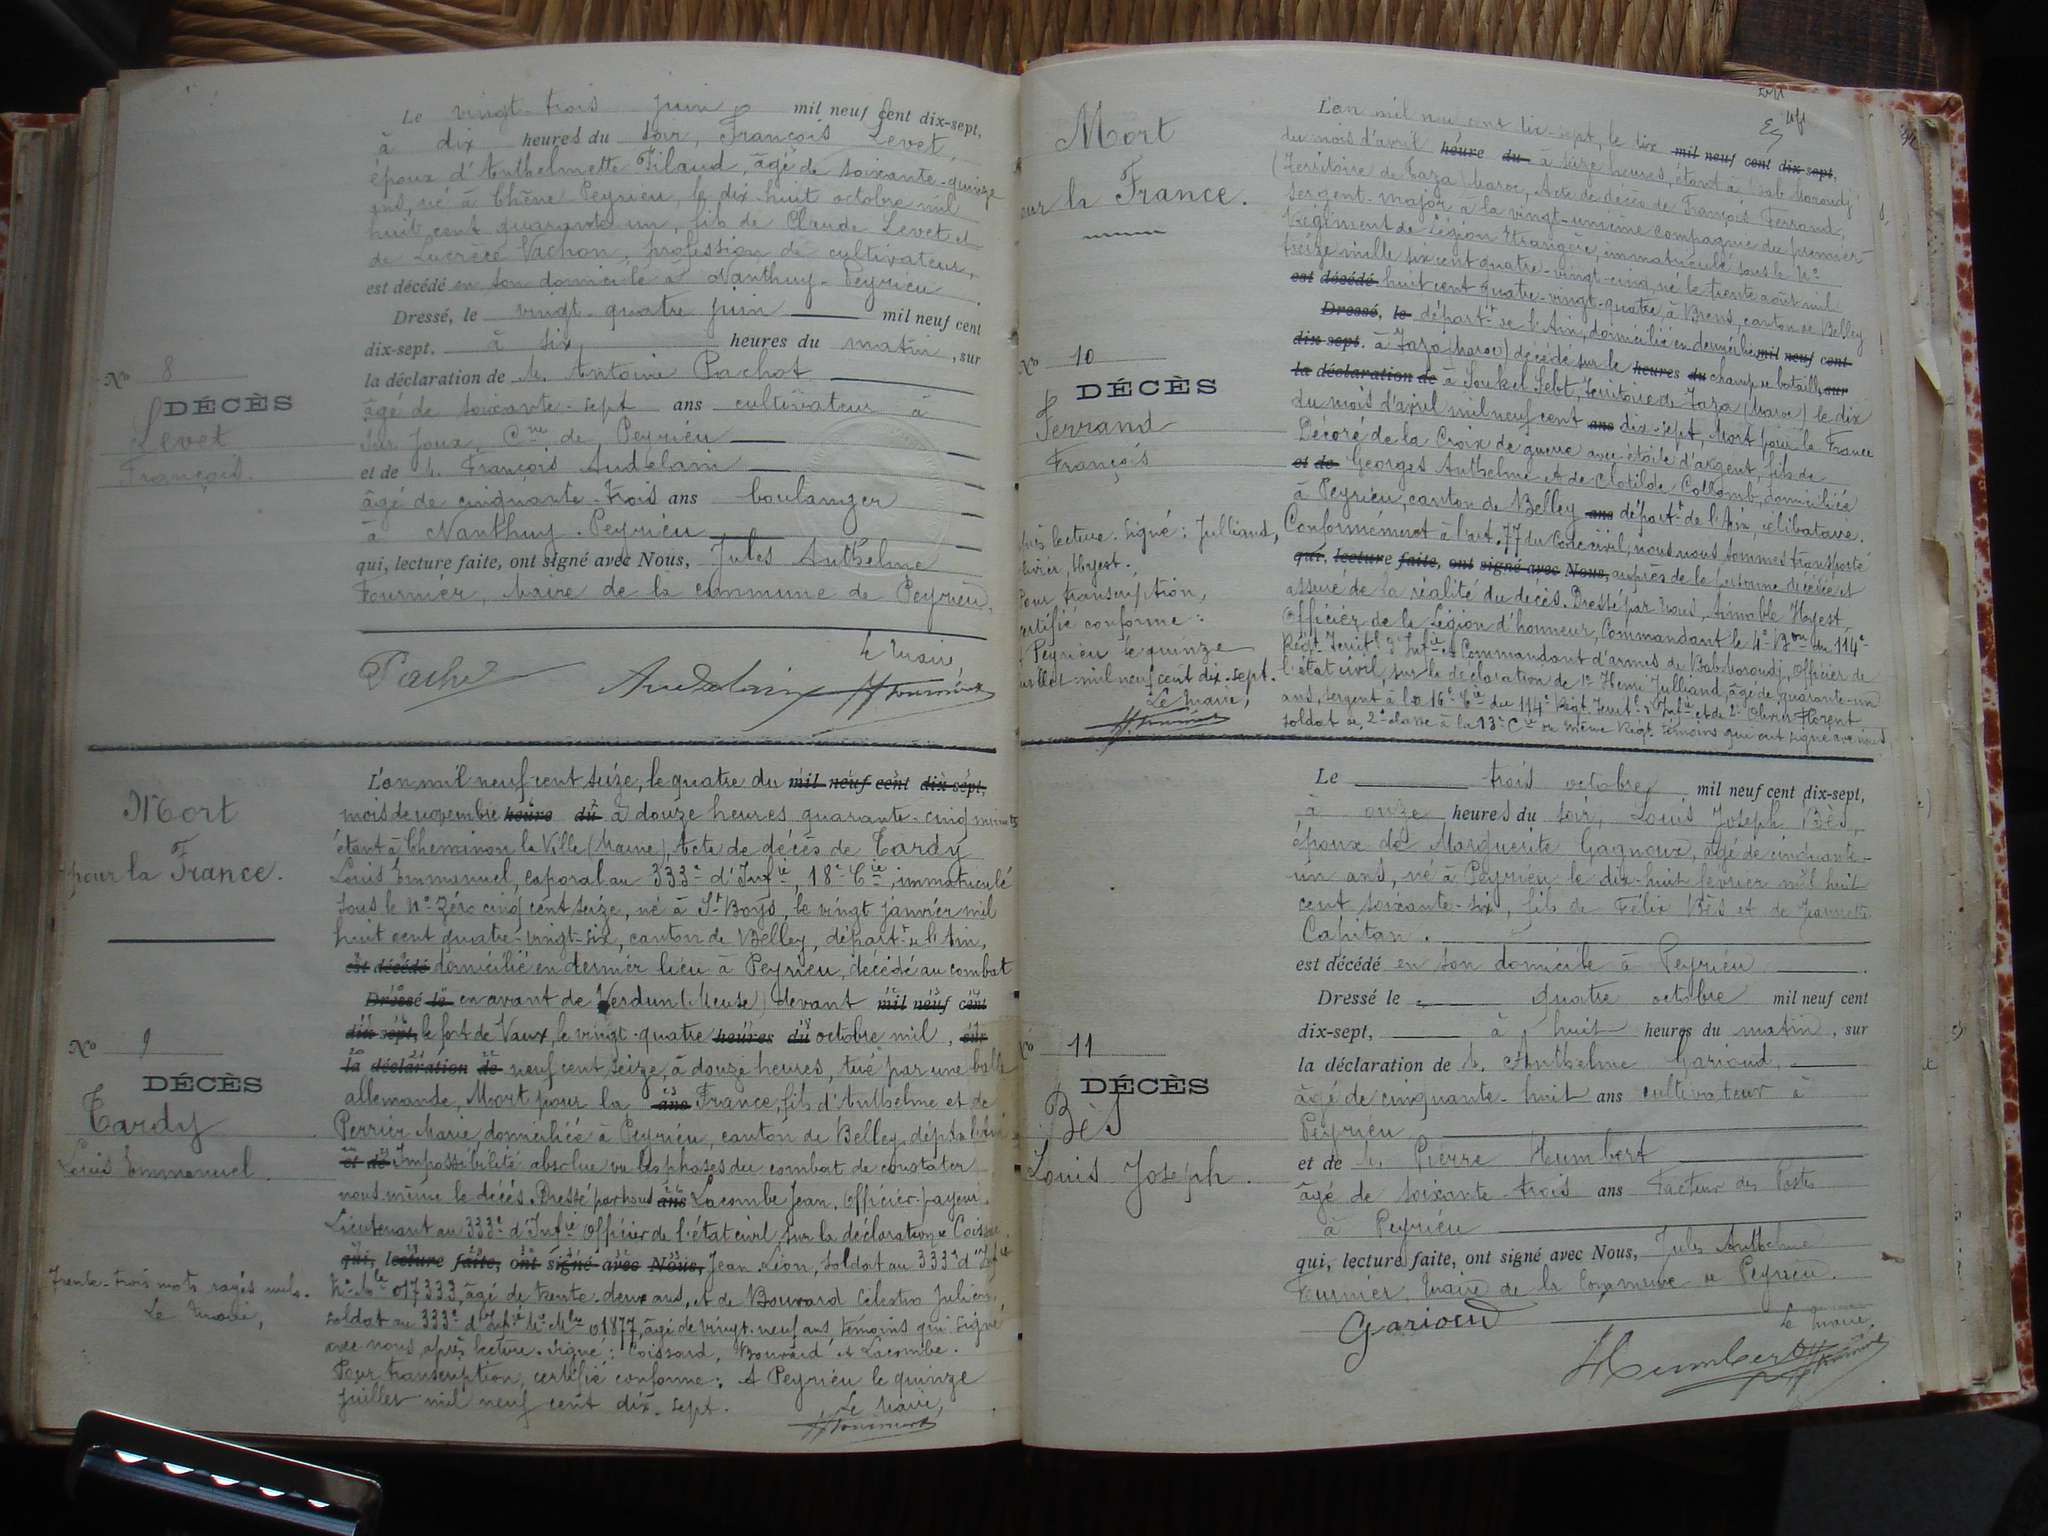 Le vingt-trois juin mil neuf cent dix-sept,
à dix heures du soir, François Levet,
époux d'Anthelmette Filaud, âgé de soixante-quinze
ans, né à Chêne Peyrieu, le dix-huit octobre mil
huit cent quarante un, fils de Claude Levet et
de Lucrèce Vachon, profession de cultivateur,
est décédé en son domicile à Nanthuy-Peyrieu
Dressé, le vingt-quatre juin mil neuf cent
dix-sept. à six heures du matin, sur
la déclaration de M. Antoine Pachot
âgé de soixante-sept ans cultivateur à
Sur Joux, Cne de Peyrieu
et de M. François Audelain
âgé de cinquante-trois ans boulanger
à Nanthuy-Peyrieu
qui, lecture faite, ont signé avec Nous, Jules Anthelme
Fournier, Maire de la commune de Peyrieu.
Le Maire,
Pachot Audelain Fournier
No 8
DÉCÈS
Levet
François.
Mort
pour la France.
No 9
DÉCÈS
Tardy
Louis Emmanuel.
Trente-trois mots rayés nuls.
Le Maire,
L'an mil neuf cent seize, le quatre du mil neuf cent dix-sept,
mois de novembre heure du à douze heures quarante-cinq minutes
étant à Cheminon la Ville (Marne), Acte de décès de Tardy
Louis Emmanuel, caporal au 333e d'Infie, 18e Cie, immatriculé
sous le No zéro cinq cent seize, né à St Boys, le vingt janvier mil
huit cent quatre-vingt-six, canton de Belley, départt de l'Ain,
est décédé domicilié en dernier lieu à Peyrieu, décédé au combat
Dressé le en avant de Verdun (Meuse) devant mil neuf cent
dix sept, le fort de Vaux, le vingt-quatre heures du octobre mil, sur
la déclaration de neuf cent seize, à douze heures, tué par une balle
allemande, Mort pour la ans France, fils d'Anthelme et de
Perrier Marie, domiciliés à Peyrieu, canton de Belley, dépt de l'Ain
et de Impossibilité absolue vu les phases du combat de constater
nous même le décès. Dressé par nous ans Lacombe Jean, Officier-payeur
Lieutenant au 333e d'Infie Officier de l'état civil, sur la déclaration de Coissard
qui, lecture faite, ont signé avec Nous, Jean Léon, soldat au 333e d'Infie
No Mle 017333, âgé de trente-deux ans, et de Bouvard Célestin Julien,
soldat au 333e d'Infie No Mle 01877, âgé de vingt-neuf ans, témoins qui ont signé
avec nous après lecture. Signé: Coissard, Bouvard et Lacombe.
Pour transcription, certifié conforme: A Peyrieu le quinze
juillet mil neuf cent dix-sept.
Le Maire,
Fournier
Mort
pour la France.
No 10
DÉCÈS
Ferrand
François
après lecture. Signé: Julliand,
Olivier, Hoyest.
Pour transcription,
certifié conforme:
A Peyrieu le quinze
juillet mil neuf cent dix-sept.
Le Maire,
Fournier
L'an mil neuf cent dix-sept, le dix mil neuf cent dix-sept,
du mois d'avril heure du à seize heures, étant à Bab Moroudj
(Territoire de Taza) Maroc, Acte de décès de François Ferrand,
Sergent-major à la vingt-unième compagnie du premier
Régiment de Légion Etrangère, immatriculé sous le No
treize mille six cent quatre-vingt-cinq, né le trente août mil
est décédé huit cent quatre-vingt-quatre, à Brens, canton de Belley
Dressé, le départt de l'Ain, domicilié en dernier lieu mil neuf cent
dix sept. à Taza (Maroc) décédé sur le heures du champ de bataille, sur
la déclaration de à Soukel Sebt, Territoire de Taza (Maroc) le dix
du mois d'avril mil neuf cent ans dix-sept, Mort pour la France
Décoré de la Croix de guerre avec étoile d'argent, fils de
et de Georges Anthelme et de Clotilde Collomb, domiciliés
à Peyrieu, canton de Belley ans départt de l'Ain, célibataire.
Conformément à l'art. 77 du Code civil, nous nous sommes transporté
qui, lecture faite, ont signé avec Nous, auprès de la personne décédée et
assuré de la réalité du décès. Dressé par Nous, Aimable Hoyest,
Officier de la Légion d'honneur, Commandant le 4e Bon du 114e
Régt Territl d'Infie et Commandant d'armes de Bab Moroudj, Officier de
l'état civil, sur la déclaration de 1o Henri Julliand, âgé de quarante-un
ans, sergent à la 16e Cie du 114e Régt Territl d'Infie et de 2o Olivier Florent
soldat de 2e classe à la 13e Cie du même Régt témoins qui ont signé avec nous
No 11
DÉCÈS
Bès
Louis Joseph.
Le trois octobre mil neuf cent dix-sept,
à onze heures du soir, Louis Joseph Bès,
époux de Marguerite Gagnoux, âgé de cinquante-
un ans, né à Peyrieu le dix-huit février mil huit
cent soixante-six, fils de Félix Bès et de Jeannette
Capitan.
est décédé en son domicile à Peyrieu
Dressé le quatre octobre mil neuf cent
dix-sept, à huit heures du matin, sur
la déclaration de M. Anthelme Garioud,
âgé de cinquante-huit ans cultivateur à
Peyrieu
et de M. Pierre Humbert
âgé de soixante-trois ans Facteur des Postes
à Peyrieu
qui, lecture faite, ont signé avec Nous, Jules Anthelme
Fournier, Maire de la Commune de Peyrieu.
Le Maire,
Garioud Humbert Fournier